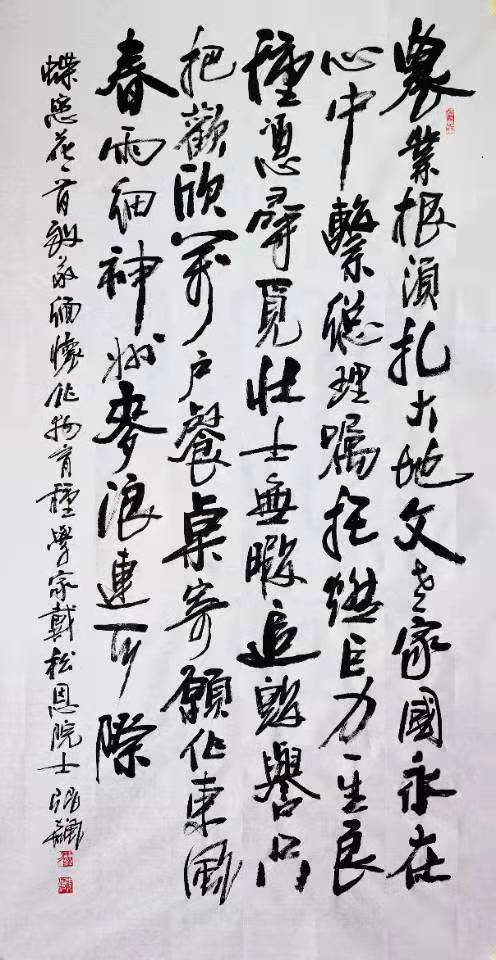 農業根須扎大地父老家國永在
心中繫總理囑托燃巨力一生良
種憑尋覓壯士無暇追毀譽只
把歡欣萬戶餐桌寄願作東風
春雨細神州麥浪連天際
蝶恋花一首緬懷作物育種學家戴松恩院士 張飆